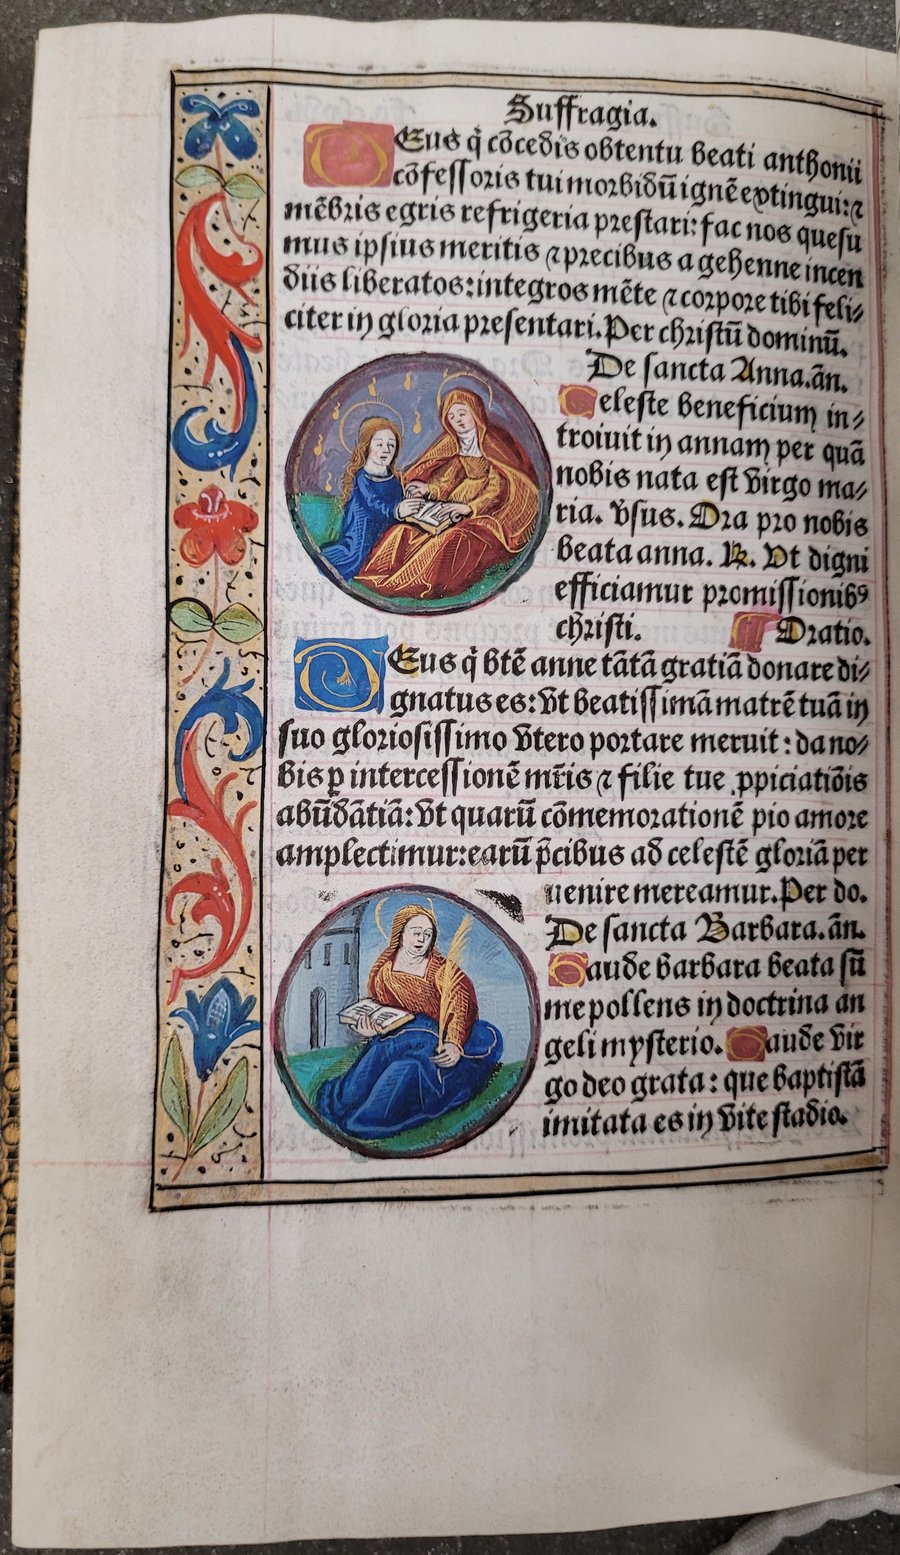 Suffragia.
Deus q̇ cōcedis obtentu beati anthonii
cōfessoris tui morbidū ignē extingui: ⁊
mēbris egris refrigeria prestari: fac nos quesu
mus ipsius meritis ⁊ precibus a gehenne incen
diis liberatos: integros mēte ⁊ corpore tibi feli⸗
citer in gloria presentari. Per christū dominū.
De sancta Anna. añ.
Celeste beneficium in⸗
troiuit in annam per quā
nobis nata est virgo ma⸗
ria. v̄sus. Ora pro nobis
beata anna. ℟. Vt digni
efficiamur promissionibꝰ
christi. Oratio.
Deus q̇ btē anne tātā gratiā donare di⸗
gnatus es: vt beatissimā matrē tuā in
suo gloriosissimo vtero portare meruit: da no⸗
bis ꝑ intercessionē mr̄is ⁊ filie tue ꝓpiciatiōis
abūdātiā: vt quarū cōmemorationē pio amore
amplectimur: earū p̄cibus ad celestē gloriā per
uenire mereamur. Per do.
De sancta Barbara. añ.
Gaude barbara beata sū
me pollens in doctrina an
geli mysterio. Gaude vir
go deo grata: que baptistā
imitata es in vite stadio.